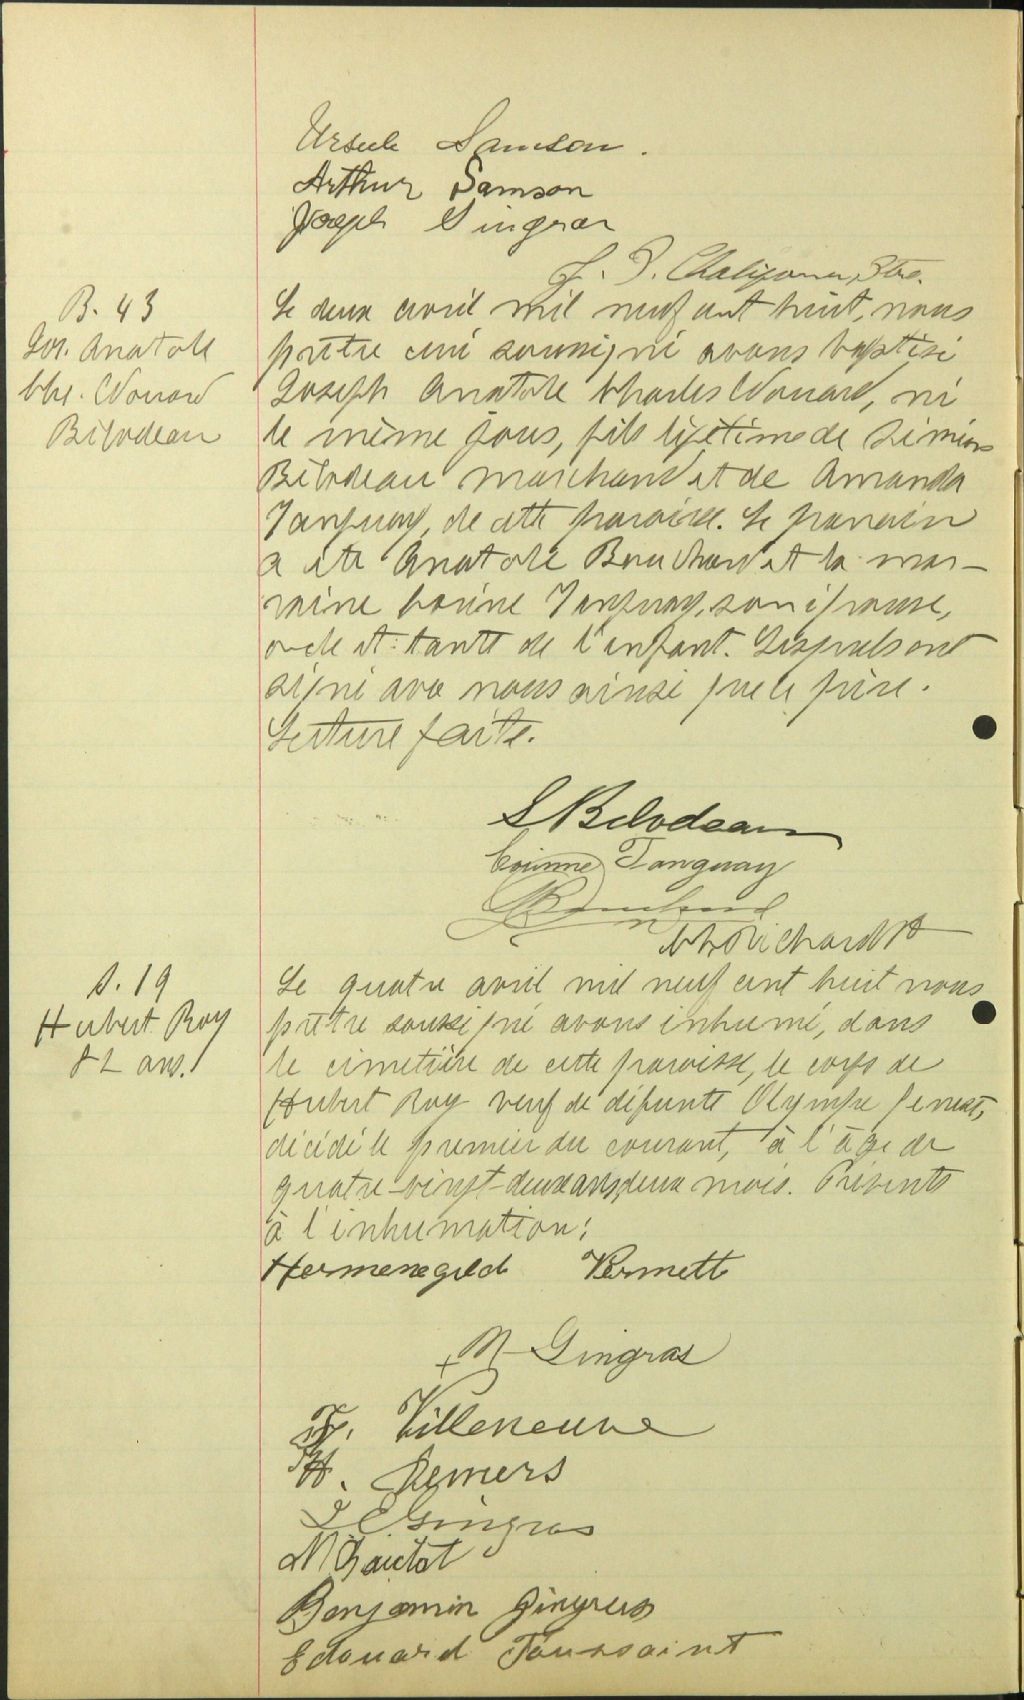 Ursule Samson.
Arthur Samson
Joseph Gingras
J. P. Ptre.
B. 43
Jos. Anatole
Chs. Edouard
Bilodeau
Le deux avril mil neuf cent huit, nous
prêtre curé soussigné avons baptisé
Joseph Anatole Charles Edouard, né
le même jour, fils légitime de Siméon
Bilodeau marchand et de Amanda
Tanguay, de cette paroisse. Le parrain
a été Anatole Bouchard et la mar-
raine Corine Tanguay, son épouse,
oncle et tante de l'enfant. Lesquels ont
signé avec nous ainsi que le père.
Lecture faite.
S Bilodeau
Corinne Tanguay
S. 19
Hubert Roy
82 ans.
Le quatre avril mil neuf cent huit nous
prêtre soussigné avons inhumé, dans
le cimetière de cette paroisse, le corps de
Hubert Roy veuf de défunte Olympe
décédé le premier du courant, à l'âge de
quatre-vingt-deux ans, deux mois. Présents
à l'inhumation:
Hermenegild Vermett
+ N Gingras
F. Villeneuve
H. Demers
J E Gingras
Benjamin Gingras
Edouard Toussaint